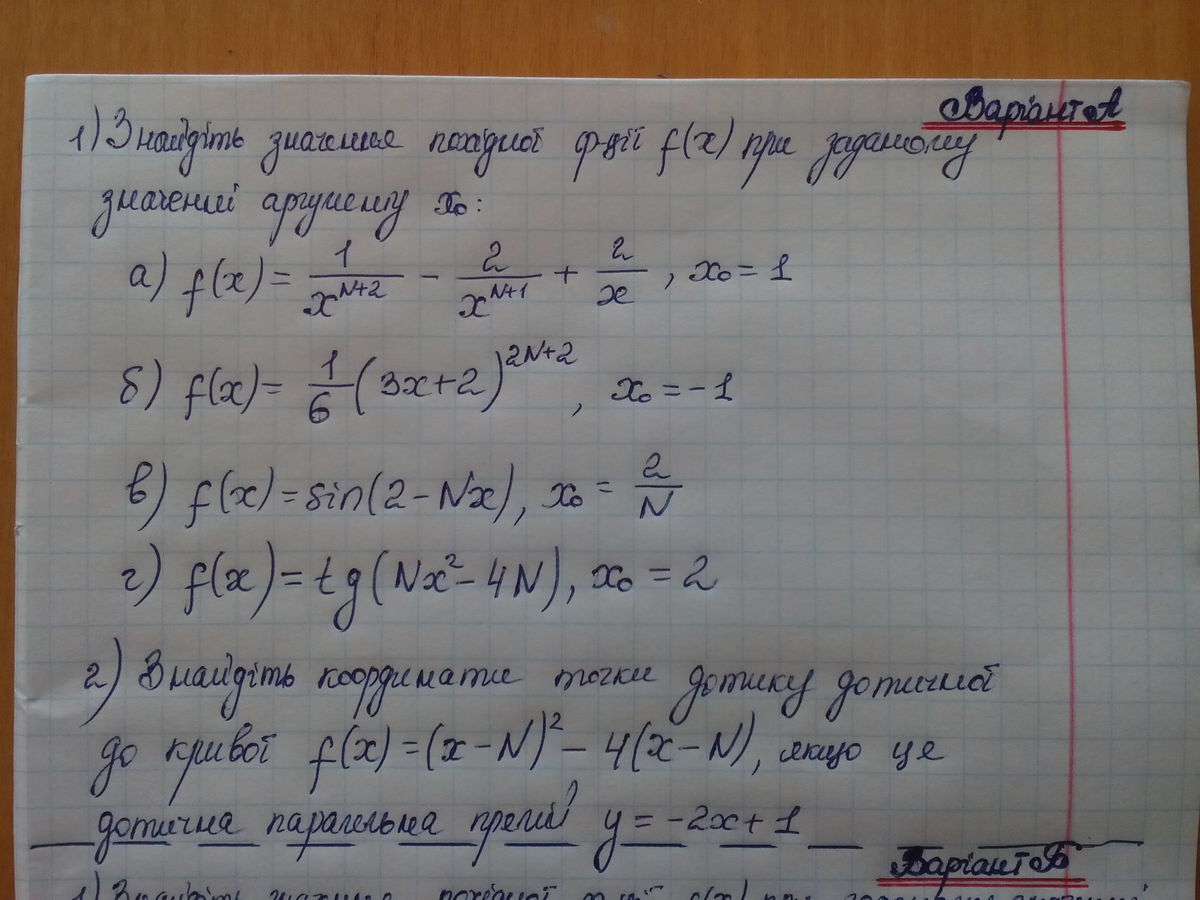 Варіант А
1) Знайдіть значення похідної ф-ції f(x) при заданому
значенні аргументу x₀:
а) f(x) = 1/x^(N+2) - 2/x^(N+1) + 2/x, x₀ = 1
б) f(x) = 1/6 (3x+2)^(2N+2), x₀ = -1
в) f(x) = sin(2-Nx), x₀ = 2/N
г) f(x) = tg(Nx²-4N), x₀ = 2
2) Знайдіть координати точки дотику дотичної
до кривої f(x) = (x-N)² - 4(x-N), якщо ця
дотична паралельна прямій y = -2x+1
Варіант Б
1) Знайдіть значення похідної ф-ції f(x) при